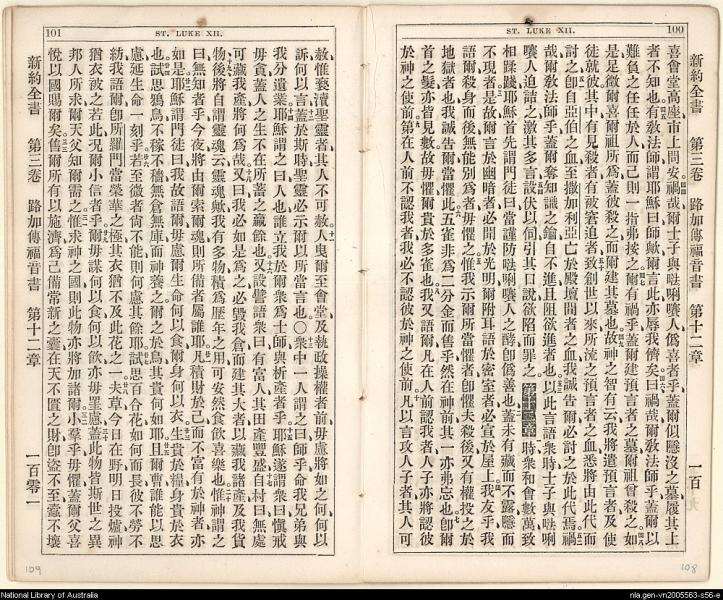 100
ST. LUKE XII.
新約全書 第三卷 路加傳福音書 第十二章 一百
喜會堂高座市上問安禍哉爾士子與唎嚷人爲喜者乎蓋爾似隱沒之墓履其上
者不知也有敎法師謂耶穌曰師歟爾言此亦辱我儕矣曰禍哉爾敎法師乎蓋爾以
難負之任任於人而己則一指弗按之爾有禍乎蓋爾建預言者之墓爾祖曾殺之如
是足徵爾喜爾祖所爲蓋彼殺之而爾建其墓也故神之智有云我將遣預言者及使
徒就彼其中有見殺者有被窘迫者致創世以來所流之預言者之血悉將由此代而
討之卽自亞伯之血至撒加利亞亡於殿壇間者之血我誠告爾必討之於此代焉禍
哉爾敎法師乎蓋爾奪知識之鑰自不進且阻欲進者也以此言語衆時士子與唎
嚷人迫詰之激其多言設伏以伺引其口說欲陷而罪之第十二章時衆和會數萬致
相蹂踐耶穌首先謂門徒曰當謹防唎嚷人之酵卽僞善也蓋未有藏而不露隱而
不現者是故爾言於幽暗者必聞於光明爾附耳語於密室者必宣於屋上我友乎我
語爾殺身而後無能別爲者毋懼之惟我示爾所當懼者卽懼夫殺後又有權投之於
地獄者也我誠告爾當懼此五雀非爲二分金而售乎然在神前其一亦弗忘也卽爾
首之髮亦皆見數故毋懼爾貴於多雀也我又語爾凡在人前認我者人子亦將認彼
於神之使前第在人前不認我者我必不認彼於神之使前凡以言攻人子者其人可
108
101
ST. LUKE XII.
赦惟褻瀆聖靈者其人不可赦人曳爾至會堂及執政操權者前毋慮將如之何何以
訴何以言蓋於斯時聖靈必示爾以所當言也○衆中一人謂之曰師乎命我兄弟與
我分遺業耶穌謂之曰人也誰立我於爾衆爲士師與析產者乎耶穌遂謂衆曰愼戒
毋貪蓋人之生不在所蓄之贏餘也又設譬語衆曰有富人其田產豐盛自忖曰無處
可藏我產將何爲哉又曰我必如是爲之必毀我倉而建其大者以藏我諸產及我貨
物後將自謂靈魂云靈魂歟我有多物積爲歷年之用可安然食飲喜樂也惟神謂之
曰無知者乎今夜將由爾索爾魂則所備者屬誰耶凡積財於己而不富有於神者亦
如是耶穌謂門徒曰我故語爾毋慮爾生命何以食爾身何以衣生貴於糧身貴於衣
也試思鴉鳥不稼不穡無倉無庫而神養之爾之於鳥其貴何如耶且爾曹誰能以思
慮延生命一刻乎若至微者尙不能則何慮其餘耶試思百合花如何而長彼不勞不
紡我語爾卽所羅門當榮華之極其衣猶不及此花之一夫草今日在野明日投爐神
猶衣被之若此況爾小信者乎爾毋謀何以食何以飲亦毋罣慮蓋此物皆斯世之異
邦人所求爾天父知爾需之惟求神之國則此物亦將加諸爾小羣乎毋懼蓋爾父喜
悅以國賜爾矣售爾所有以施濟爲己備常新之囊在天不匱之財卽盜不至蠹不壞
新約全書 第三卷 路加傳福音書 第十二章 一百零一
109
National Library of Australia
nla.gen-vn2005563-s56-e